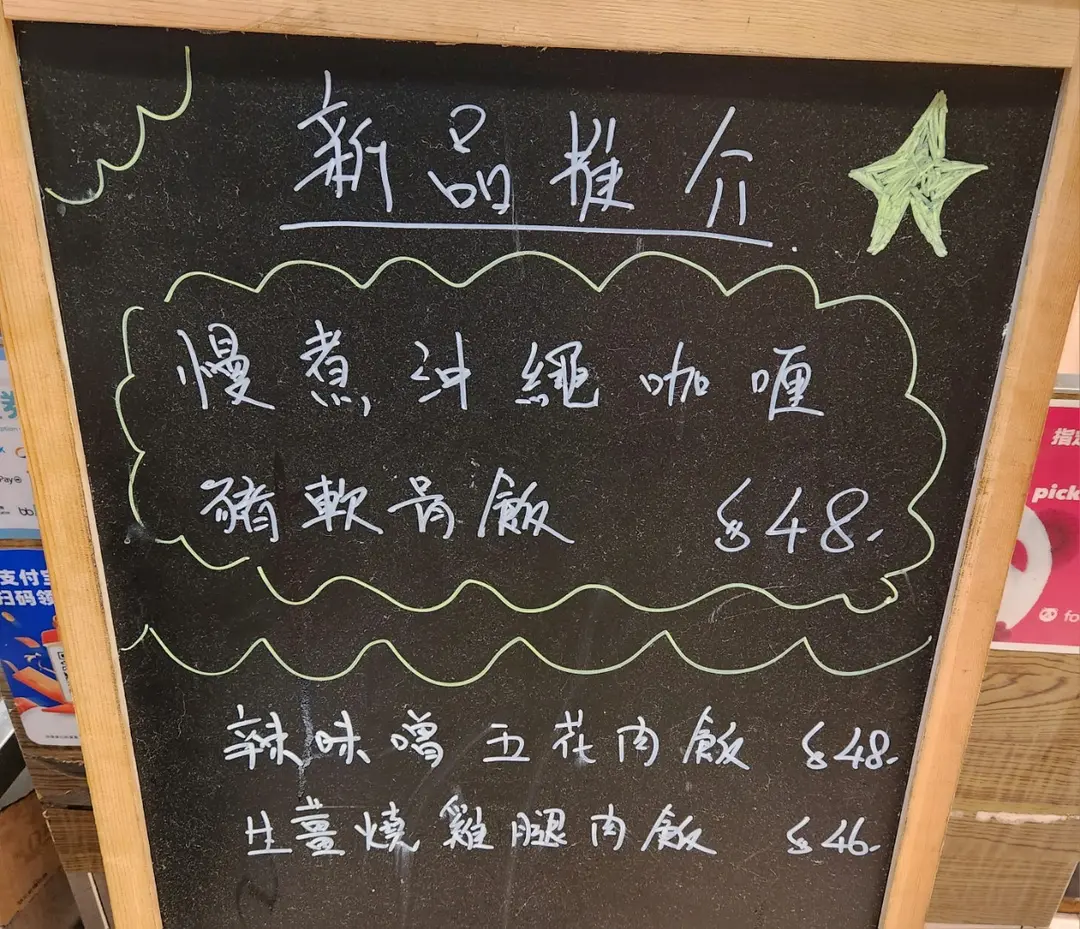 新品推介
慢煮沖繩咖喱
豬軟骨飯 $48.
辣味噌五花肉飯 $48.
生薑燒雞腿肉飯 $46.
支付宝
扫码领
Pay
指定
pick
fo